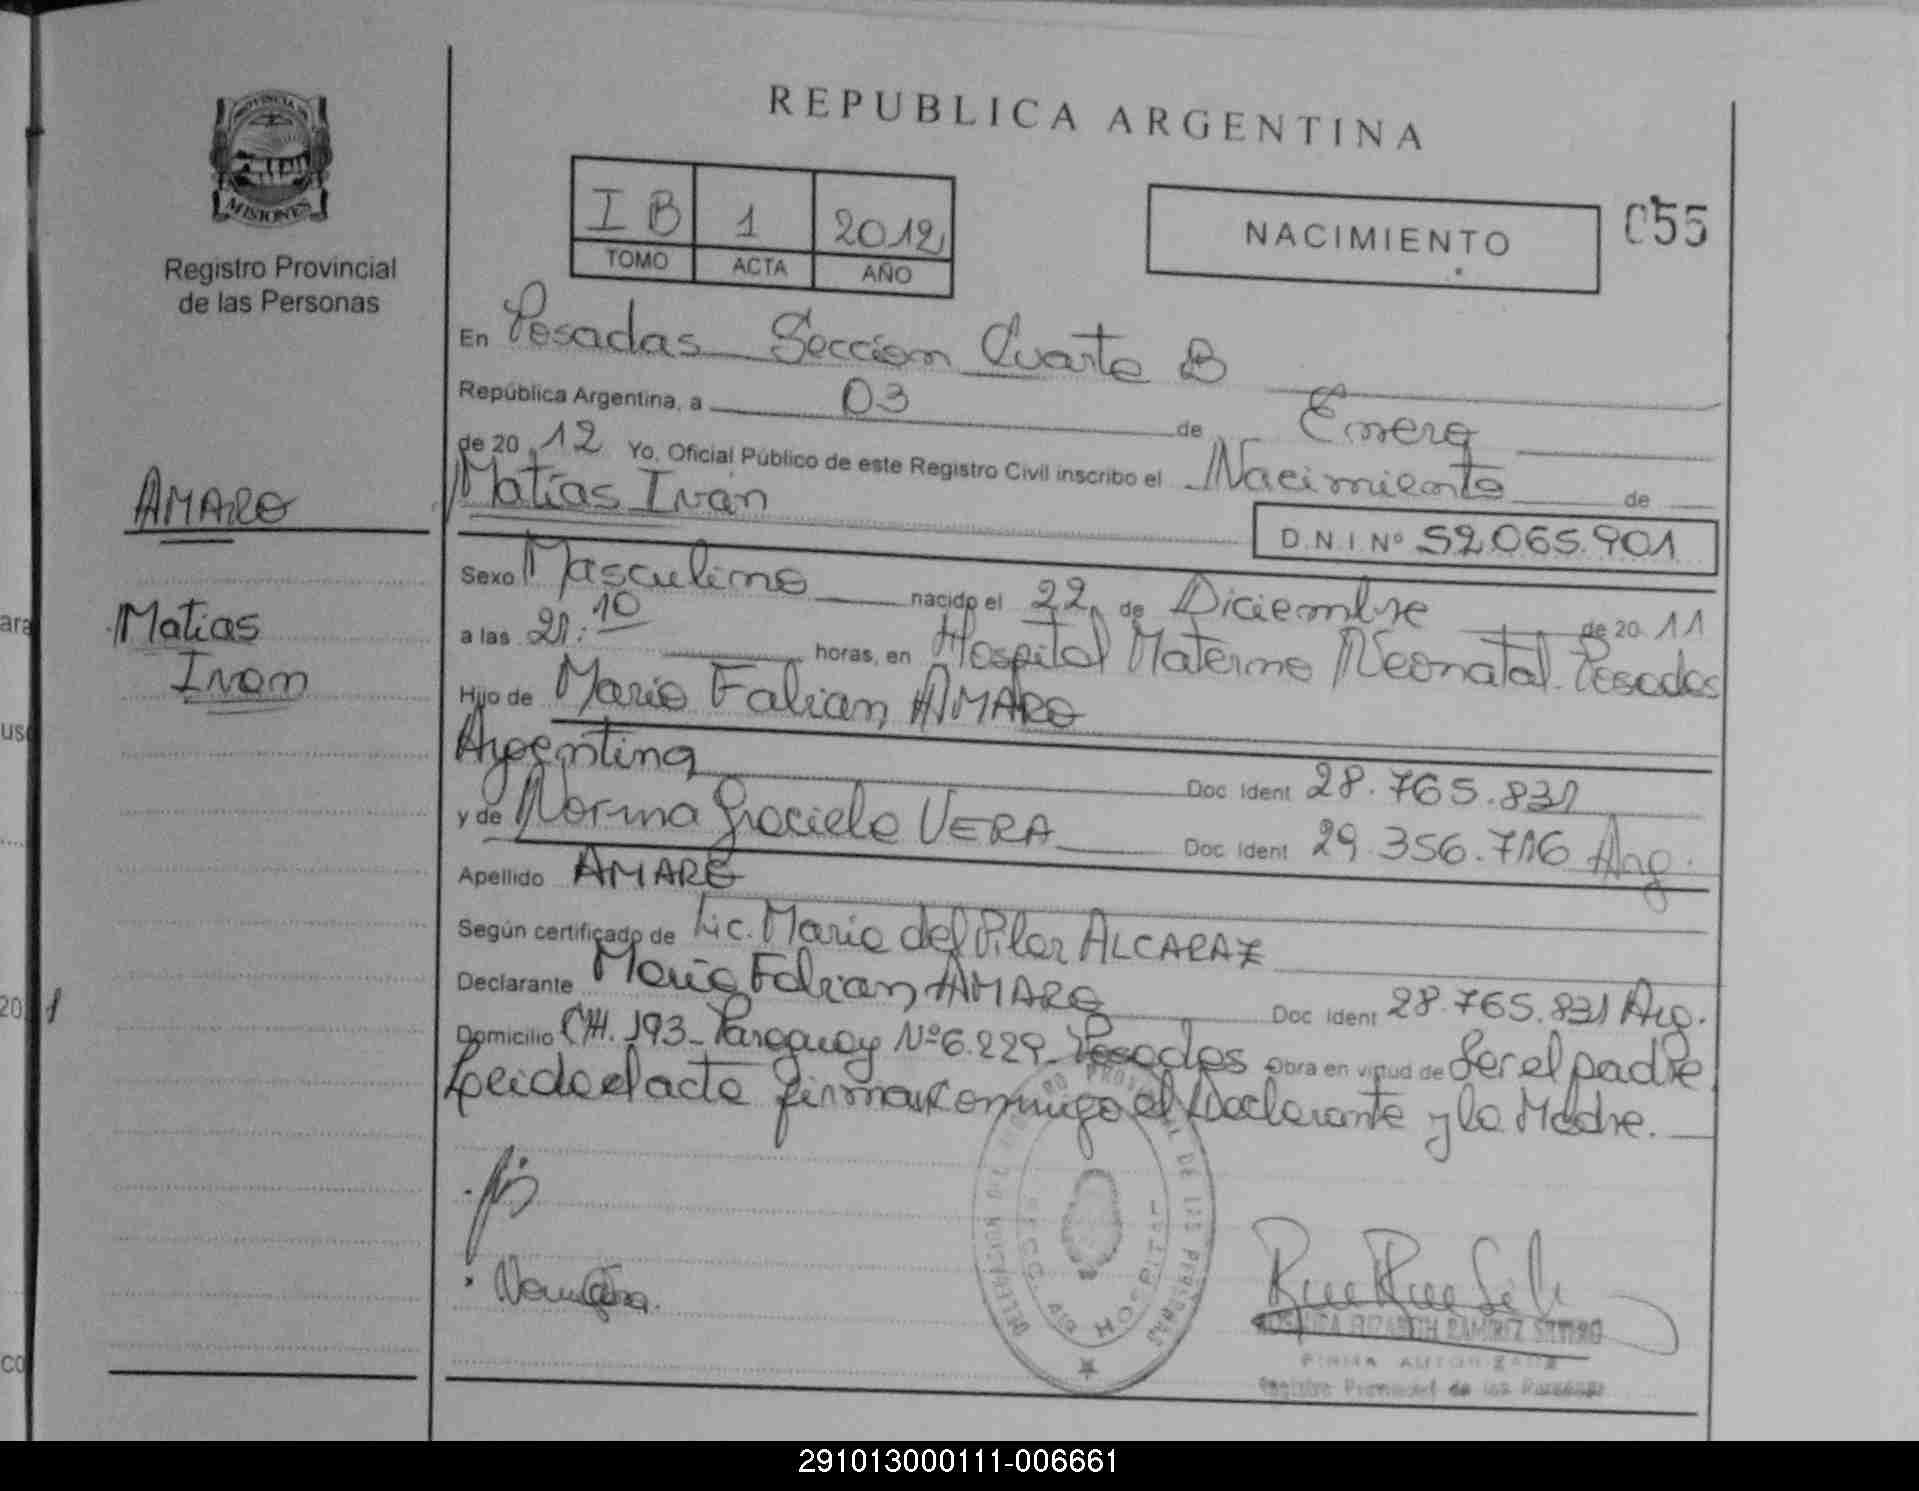 REPUBLICA ARGENTINA
PROVINCIA DE
MISIONES
Registro Provincial
de las Personas
I B 1 2012
TOMO ACTA AÑO
NACIMIENTO
055
En Posadas Seccion Cuarta B
República Argentina, a 03 de Enero
de 2012 Yo, Oficial Público de este Registro Civil inscribo el Nacimiento de
Matías Iván
D.N.I. Nº 52.065.901
AMARO
Matias
Ivan
Sexo Masculino nacido el 22 de Diciembre de 2011
a las 21:10 horas, en Hospital Materno Neonatal. Posadas
Hijo de Mario Fabian AMARO
Argentina Doc Ident 28.765.831
y de Norma Graciela VERA Doc Ident 29.356.716 Arg.
Apellido AMARO
Según certificado de Lic. Maria del Pilar ALCARAZ
Declarante Mario Fabian AMARO Doc Ident 28.765.831 Arg.
Domicilio CH. 193- Paraguay Nº 6.229- Posadas Obra en virtud de Ser el padre
Leida el acta firman conmigo el Declarante y la Madre.
DELEGACION DEL REGISTRO PROVINCIAL DE LAS PERSONAS
SECC. 4ta B HOSPITAL
RAMIREZ
FIRMA AUTORIZADA
Registro Provincial de las Personas
291013000111-006661